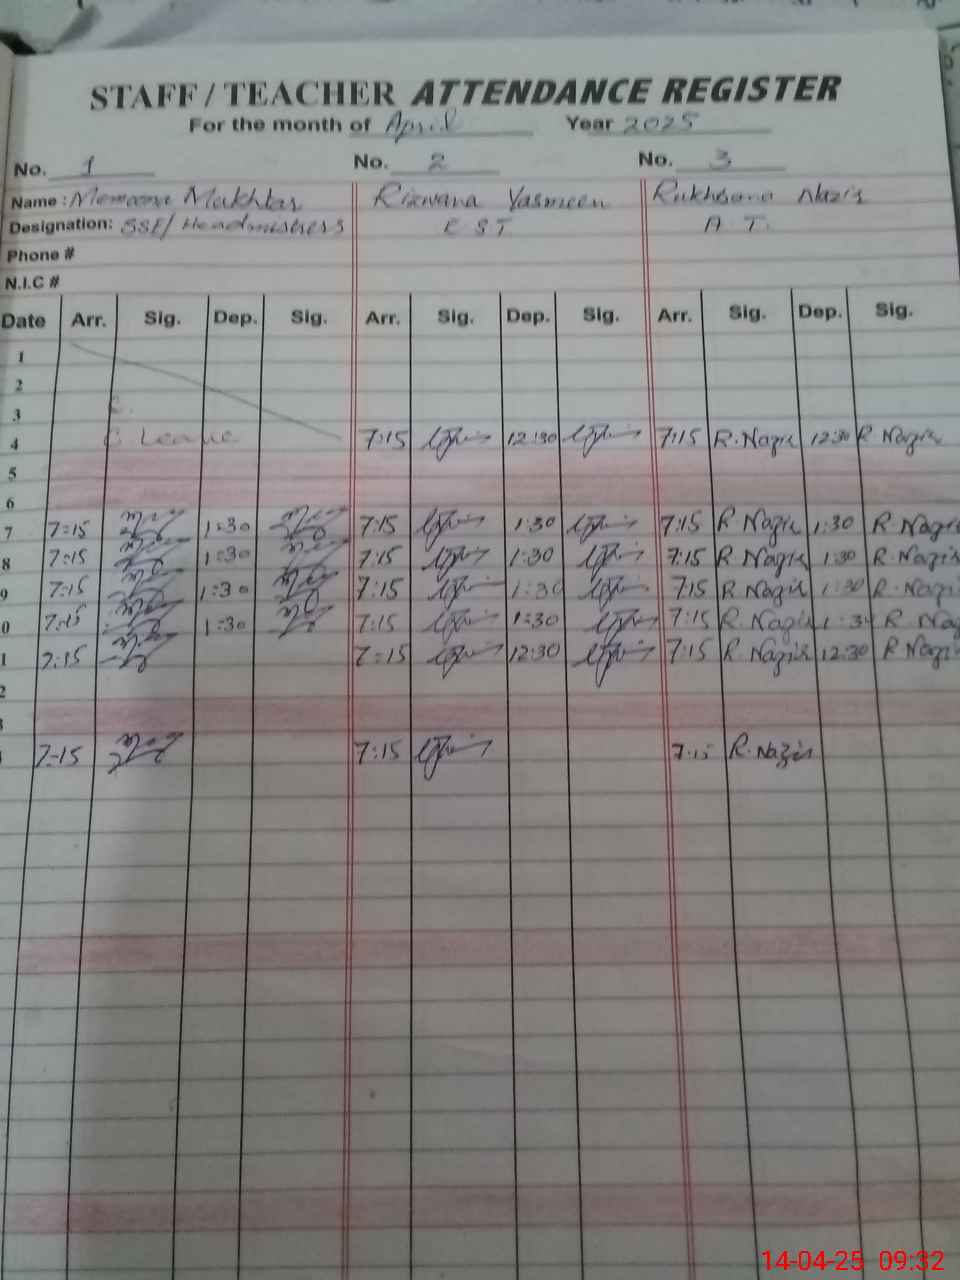 STAFF / TEACHER ATTENDANCE REGISTER
For the month of April Year 2025
No. 1 No. 2 No. 3
Name: Memoona Mukhtar Rizwana Yasmeen Rukhsana Nazir
Designation: SSE/Headmistress EST A.T.
Phone #
N.I.C #
Date Arr. Sig. Dep. Sig. Arr. Sig. Dep. Sig. Arr. Sig. Dep. Sig.
1
2
3 C.
4 C Leave 7:15 12:30 7:15 R.Nazir 12:30 R Nazir
5
6
7 7:15 1:30 7:15 1:30 7:15 R Nazir 1:30 R. Nazir
8 7:15 1:30 7:15 1:30 7:15 R Nazir 1:30 R. Nazir
9 7:15 1:30 7:15 1:30 7:15 R Nazir 1:30 R. Nazir
0 7:15 1:30 7:15 1:30 7:15 R.Nazir 1:30 R. Naz
1 7:15 7:15 12:30 7:15 R.Nazir 12:30 R Nazi
2
3
7:15 7:15 7:15 R.Nazir
14-04-25 09:32